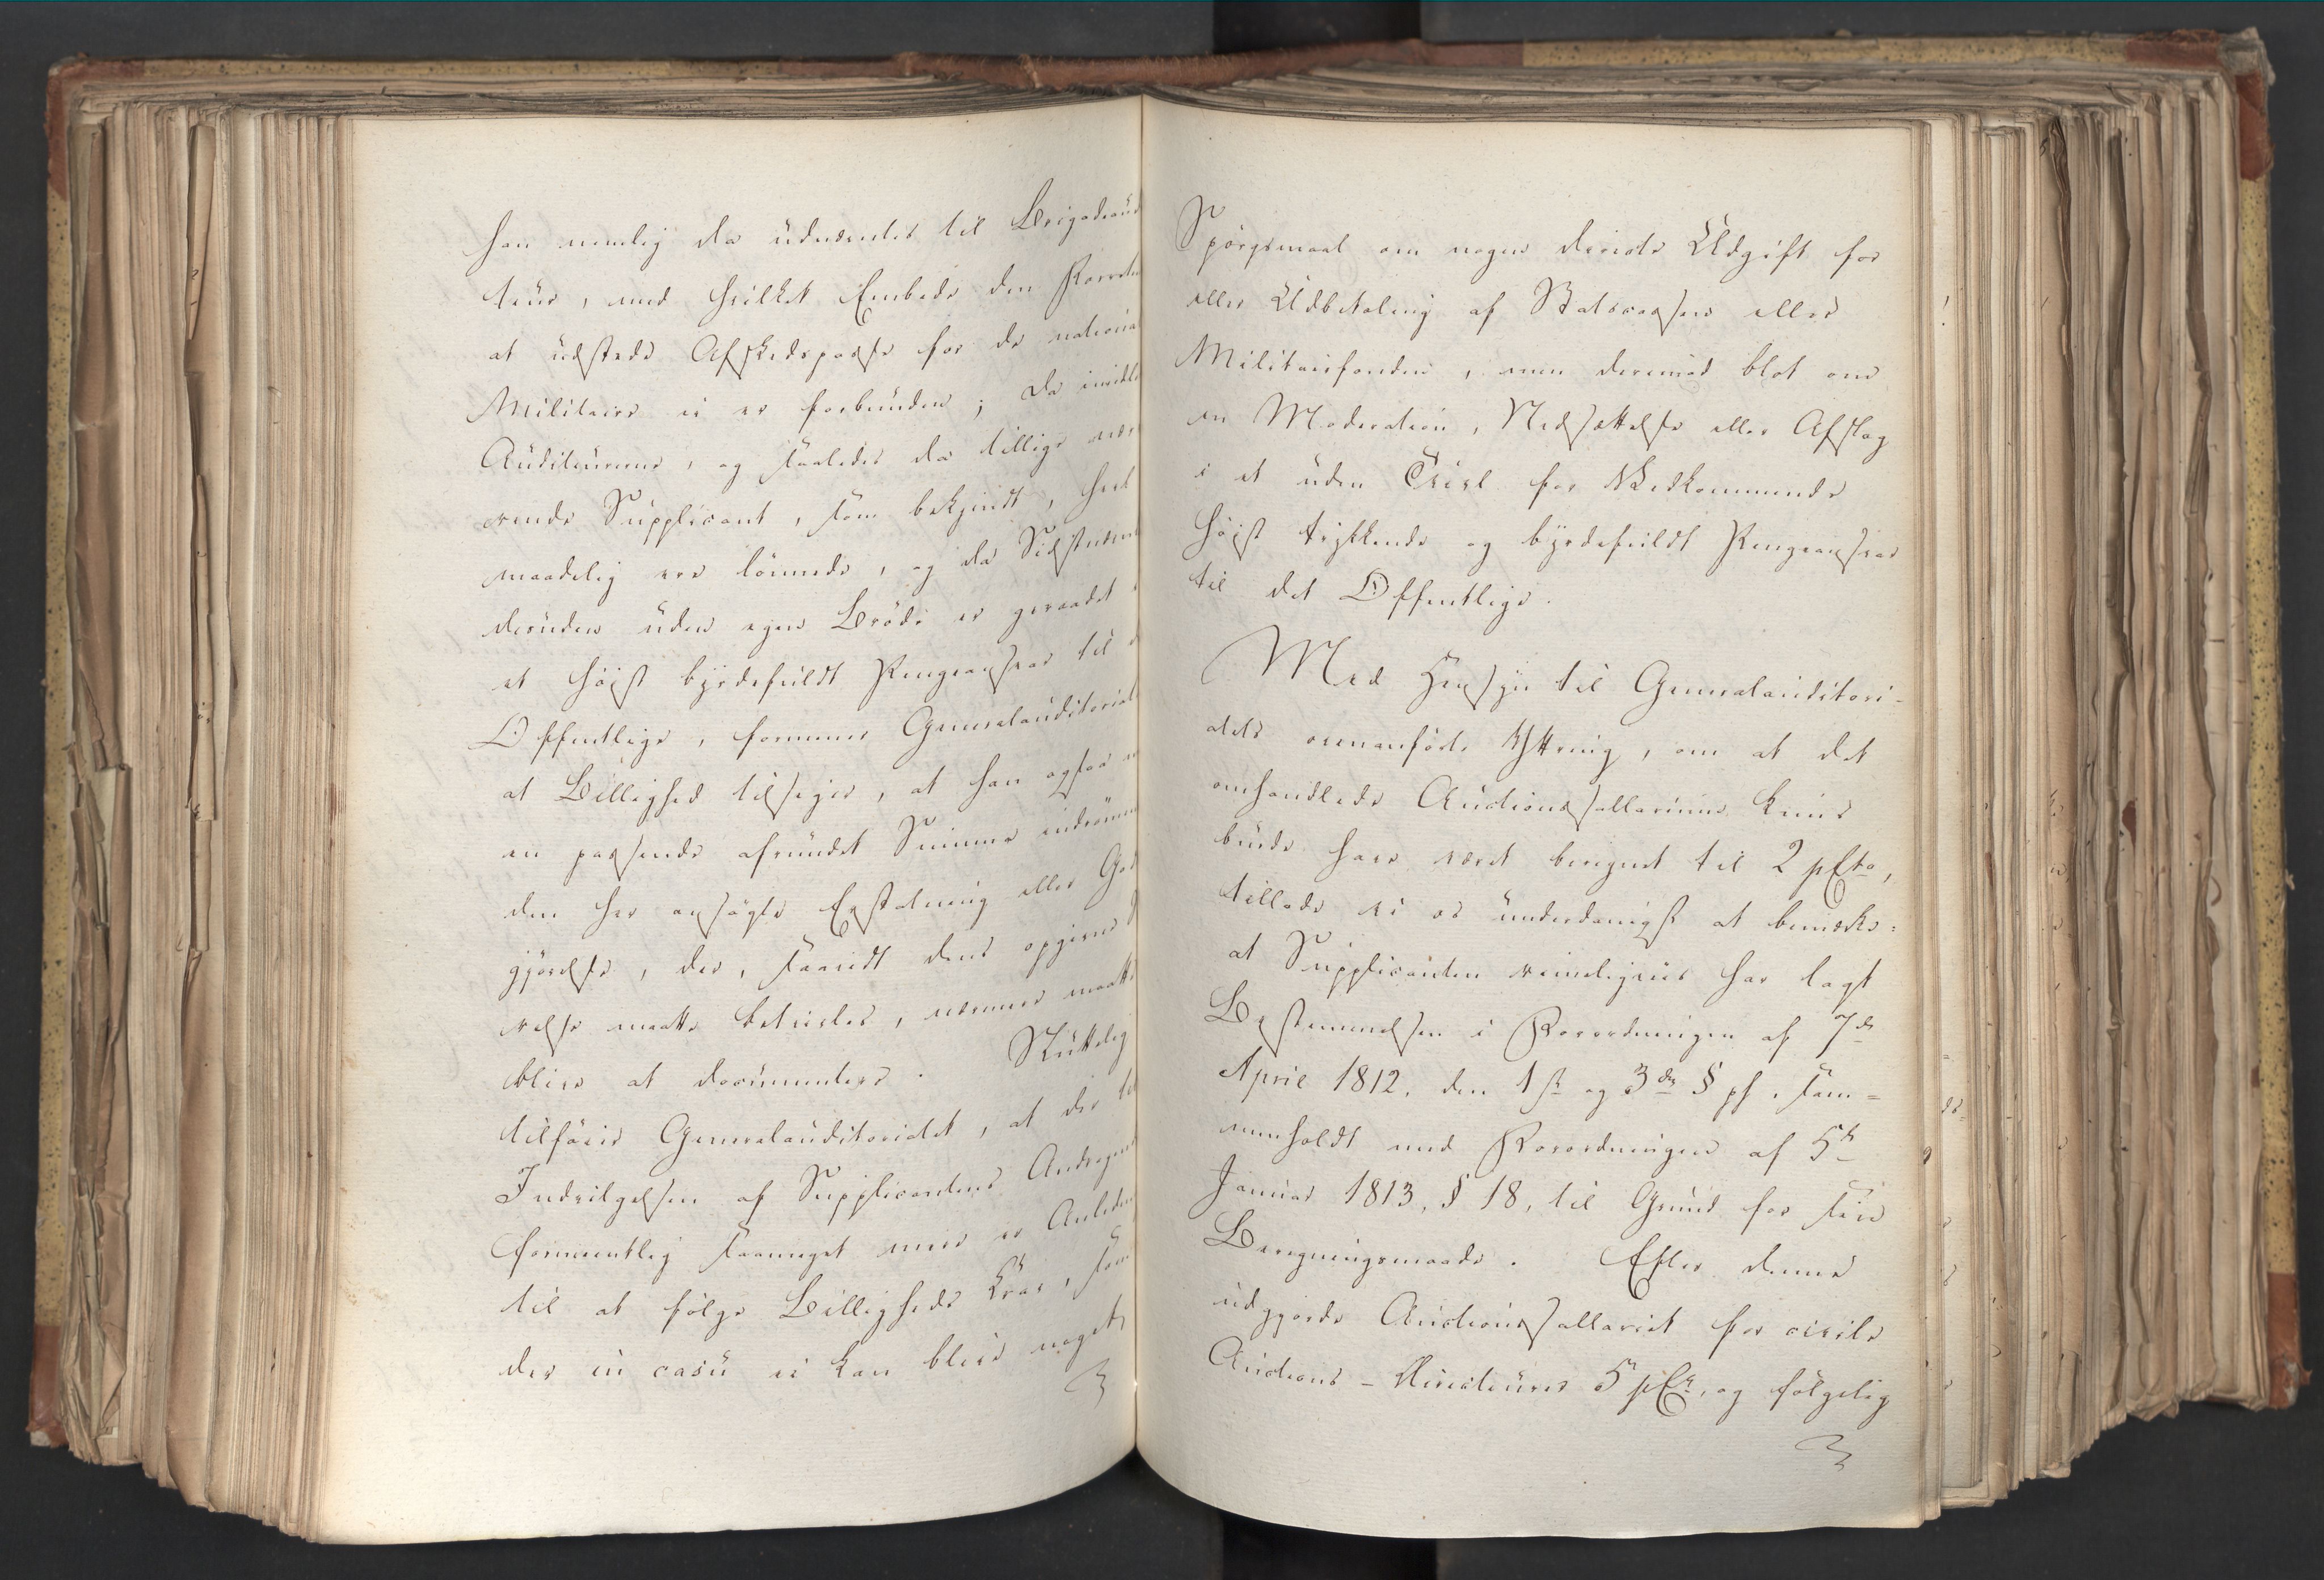 han nemlig da udnævntes til Brigadeaud
teur, med hvilket Embede den Forret
at udstede Afskedspasse for de nationa
Militaire ei er forbunden; da
Auditeurerne, og saaledes da tillige nær¬
rende Supplicant, som bekjendt, heel
maadelig ere lönnede, og da Sidstnævnt
desuden uden egen Bröde er geraadet i
et höist byrdefuldt Pengeansvar til d
Offentlige, formener Generalauditoriat
at Billighed tilsiger, at han ogsaa
en passende afrundet Summa indrömm
den her ansögte Erstatning eller God
gjörelse, der, saavidt dens opgivne
relse maatte betvivles, nærmere maatte
blive at documentere. Sluttelig
tilföier Generalauditoriatet, at der til
Indvilgelsen af Supplicantens Andragen
formeentlig saameget mere er Anledn
til at fölge Billigheds Krav, som
der in casu ei kan blive noget
Spörgsmaal om nogen directe Udgift for
eller Udbetaling af Statscassen eller
Militairfonden, men derimod blot om
en Moderation, Nedsættelse eller Afslag
i et uden Tvivl for Vedkommende
höist trykkende og byrdefuldt Pengeansvar
til det Offentlige.
Med Hensyn til Generalauditori-
atets ovenanförte Yttring, om at det
omhandlede Auctionssallarium kuns
burde have været beregnet til 2 pCto,
tillade vi os underdanigst at bemærke:
at Supplicanten rimeligviis har lagt
Bestemmelsen i Forordningen af 7de
April 1812, den 1ste og 3die § ph. sam=
menholdt med Forordningen af 5te
Januar 1813, § 18, til Grund for sin
Beregningsmaade. Efter denne
udgjorde Auctionssallariet for civile
Auctions-Directeurer 5 pCt, og fölgelig